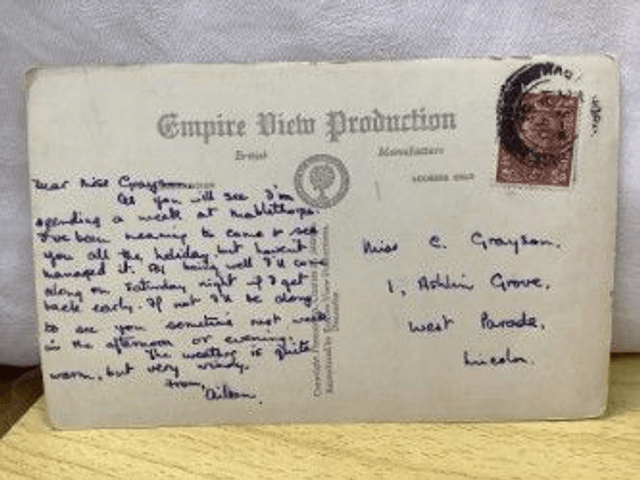 Empire View Production
British Manufacture
ADDRESS ONLY
Dear Miss Grayson
As you will see I'm
spending a week at Mablethorpe.
I've been meaning to come to see
you all the holiday, but haven't
managed it. All being well I'll come
along on Saturday night if I get
back early. If not I'll be along
to see you sometime next week
in the afternoon or evening.
The weather is quite
warm, but very windy.
From,
Miss C. Grayson,
1, Ashlin Grove,
West Parade,
Lincoln.